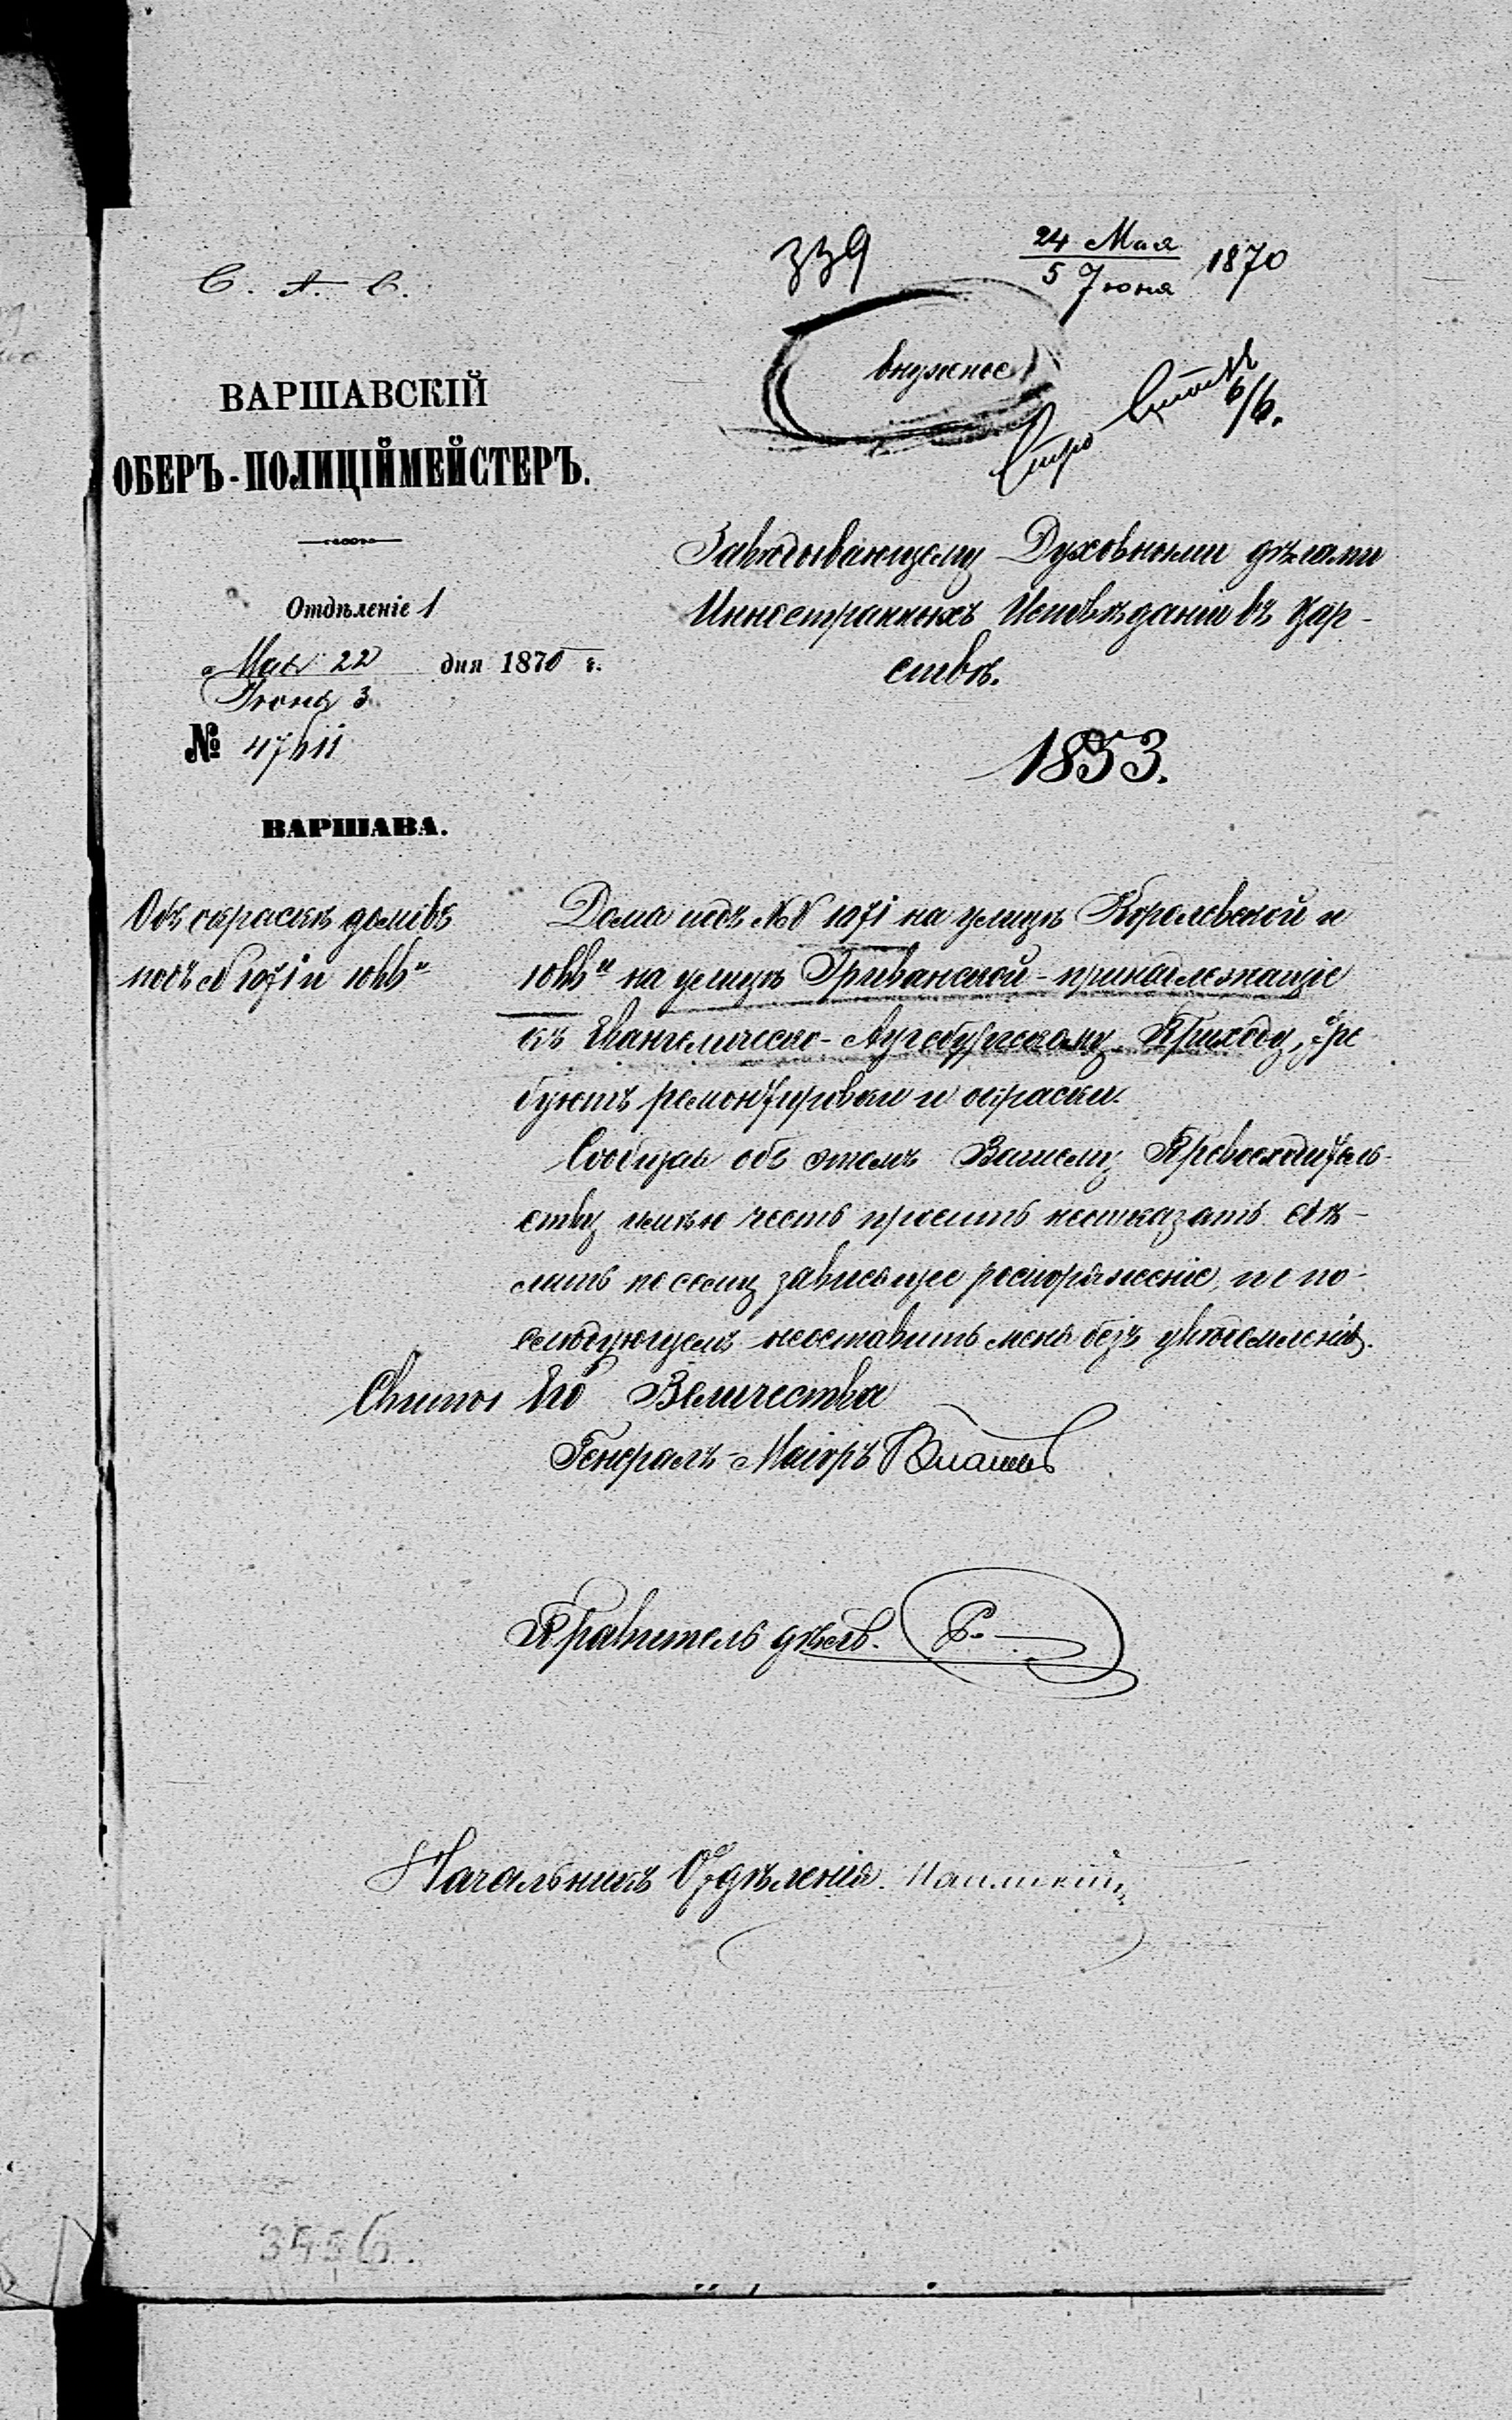 С. А. С.
339
24 Мая
5 Іюня 1870
нужное
6/6.
ВАРШАВСКІЙ
ОБЕРЪ-ПОЛИЦІЙМЕЙСТЕРЪ.
Отдѣленіе 1
Мая 22 дня 1870 г.
Іюня 3
№ 47611
ВАРШАВА.
Завѣдывающему Духовными дѣлами
Иностранныхъ Исповѣданій въ Цар-
ствѣ.
1853.
Объ окраскѣ домовъ
подъ № 1071 и 1066
Дома подъ №№ 1071 на улицѣ Королевской и
1066 на улицѣ Эриванской - принадлежащіе
къ Евангелическо-Аугсбургскому Приходу, тре
буютъ ремонтировки и окраски.
Сообщая объ этомъ Вашему Превосходитель-
ству имѣю честь просить неотказать сдѣ-
лать по сему зависящее распоряженіе, и о по-
слѣдующемъ неоставить меня безъ увѣдомленія.
Свиты Его Величества
Генералъ-Маіоръ Власовъ
Правитель дѣлъ.
Начальникъ Отдѣленія